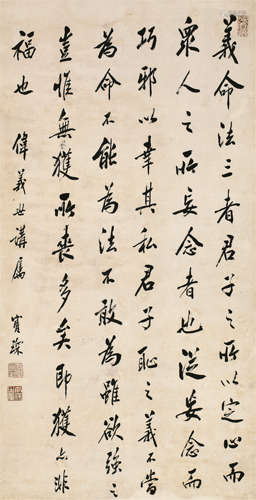 義命法三者君子之所以定心而
衆人之所妄念者也從妄念而
巧邪以幸其私君子恥之義不當
為命不能為法不敢為雖欲強之
豈惟無獲所喪多矣即獲亦非
福也
偉義世講屬 寶琛